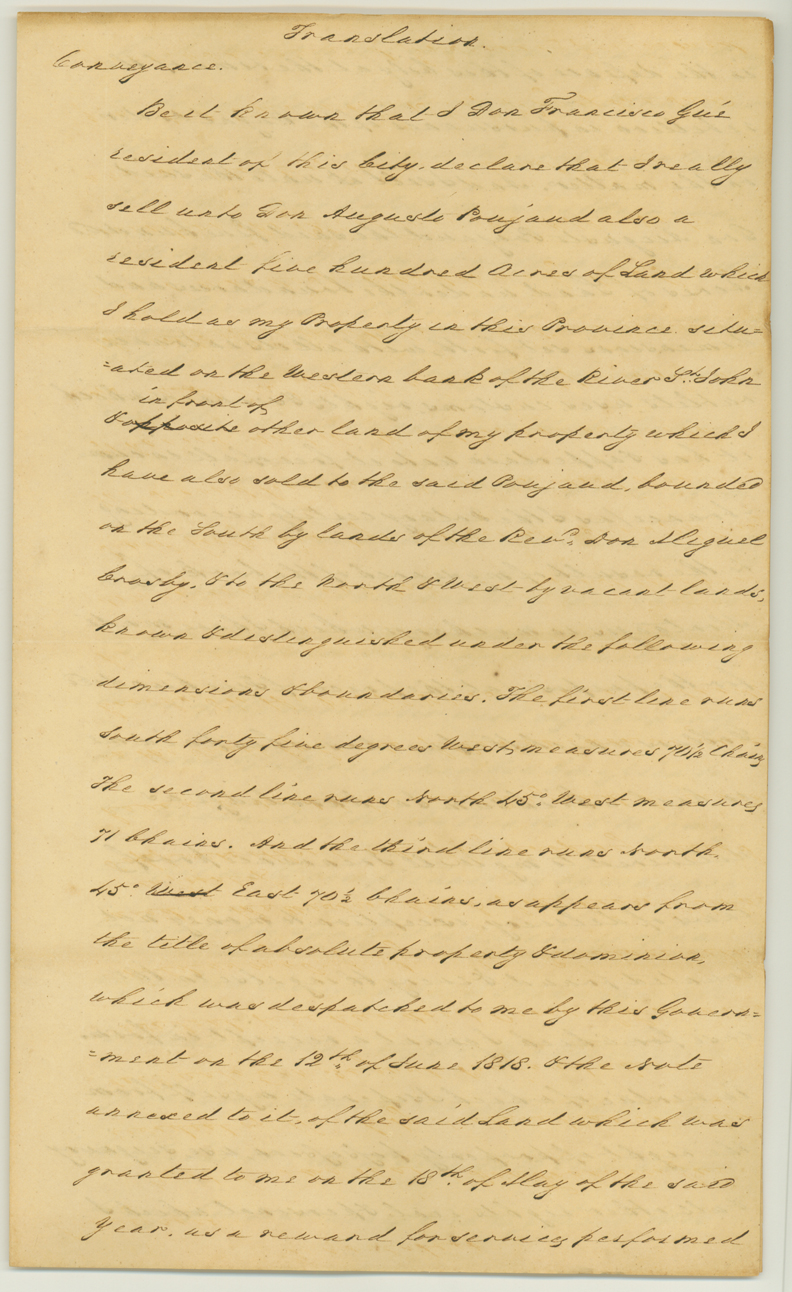 Translation.
Conveyance.
Be it known that I Don Francisco Gué
resident of this City, declare that I really
sell unto Don Augusto Poujaud also a
resident five hundred Acres of Land which
I hold as my Property in this Province situ=
=ated on the Western bank of the River St. John
in front of
& opposite other land of my property which I
have also sold to the said Poujaud, bounded
on the South by lands of the Revd. Don Miguel
Crosby, & to the North & West by vacant lands,
known & distinguished under the following
dimensions & boundaries. The first line runs
South forty five degrees West, measures 70½ Chains
The second line runs North 45° West measures
71 Chains. And the third line runs North
45° West East 70½ Chains, as appears from
the title of absolute property & dominion,
which was despatched to me by this Govern=
=ment on the 12th. of June 1818. & the Note
annexed to it, of the said Land which was
granted to me on the 18th. of May of the said
year, as a reward for services performed